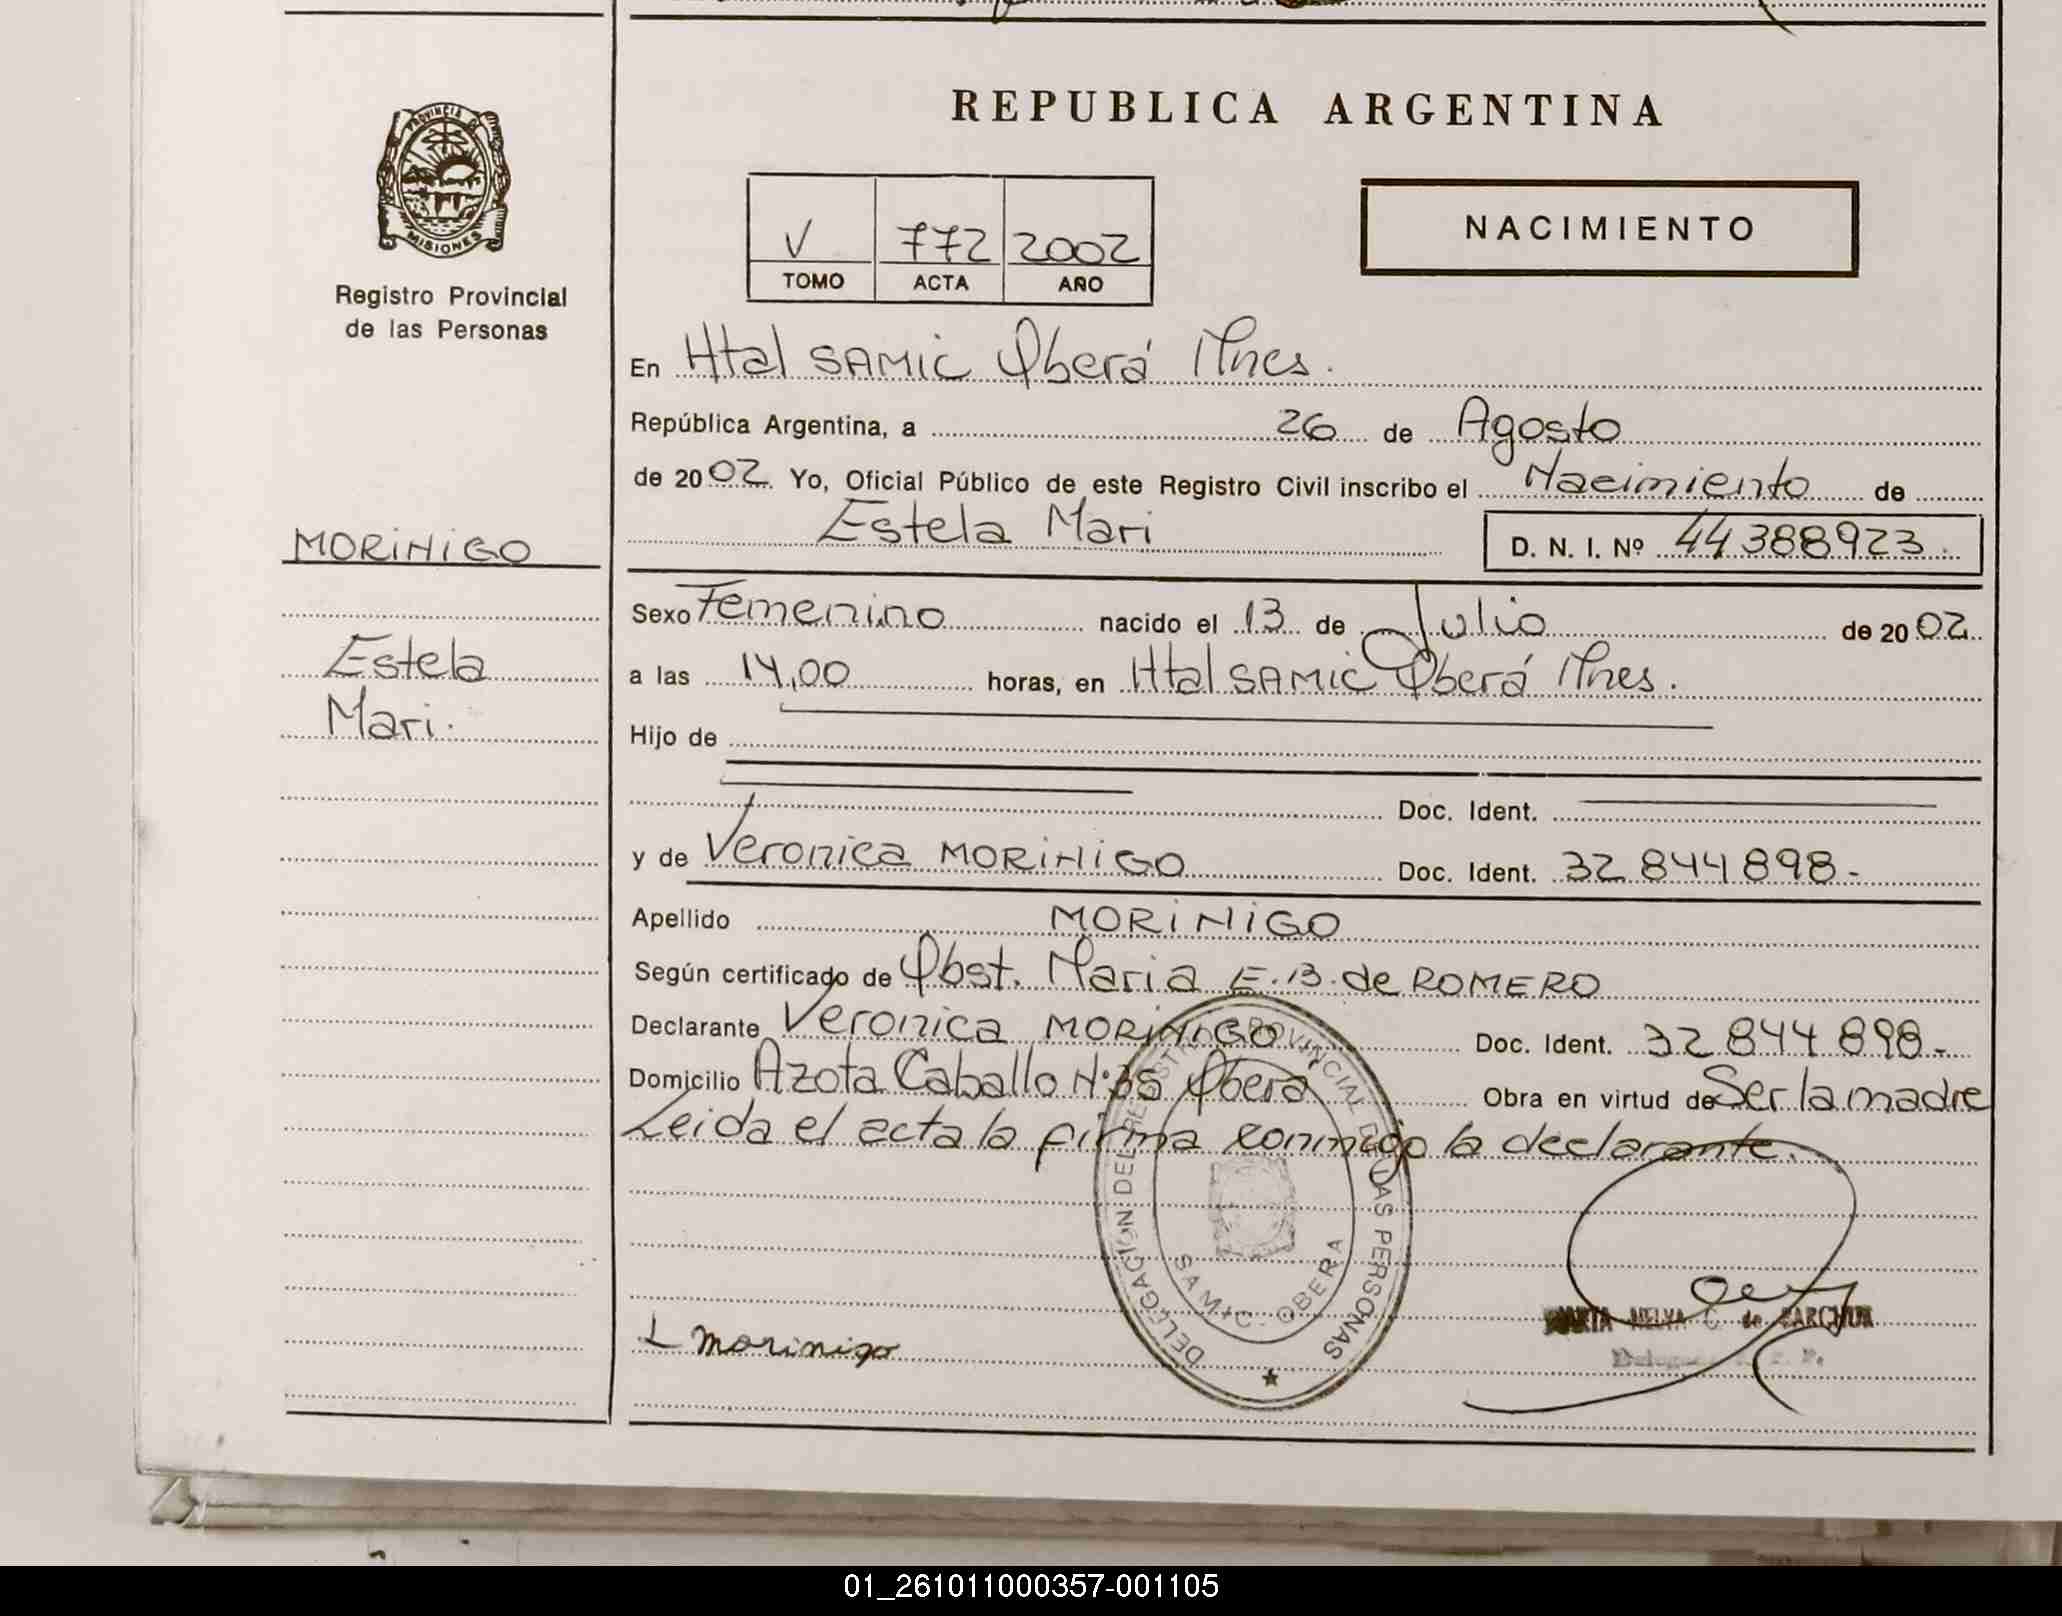 REPUBLICA ARGENTINA
PROVINCIA DE
MISIONES
Registro Provincial
de las Personas
V 772 2002
TOMO ACTA AÑO
NACIMIENTO
En Htal SAMIC Oberá Mnes.
República Argentina, a 26 de Agosto
de 2002. Yo, Oficial Público de este Registro Civil inscribo el Nacimiento de
Estela Mari D. N. I. Nº 44388923.
MORINIGO
Estela
Mari.
Sexo Femenino nacido el 13 de Julio de 2002
a las 14,00 horas, en Htal SAMIC Oberá Mnes.
Hijo de
Doc. Ident.
y de Veronica MORINIGO Doc. Ident. 32 844 898-
Apellido MORINIGO
Según certificado de Obst. Maria E.B. de ROMERO
Declarante Veronica MORINIGO Doc. Ident. 32 844 898-
Domicilio Azota Caballo Nº 35 Oberá Obra en virtud de Ser la madre
Leida el acta la firma conmigo la declarante.
DELEGACION DEL REGISTRO PROVINCIAL DE LAS PERSONAS
SAMIC - OBERA
morinigo
MARTA NELVA C de
01_261011000357-001105